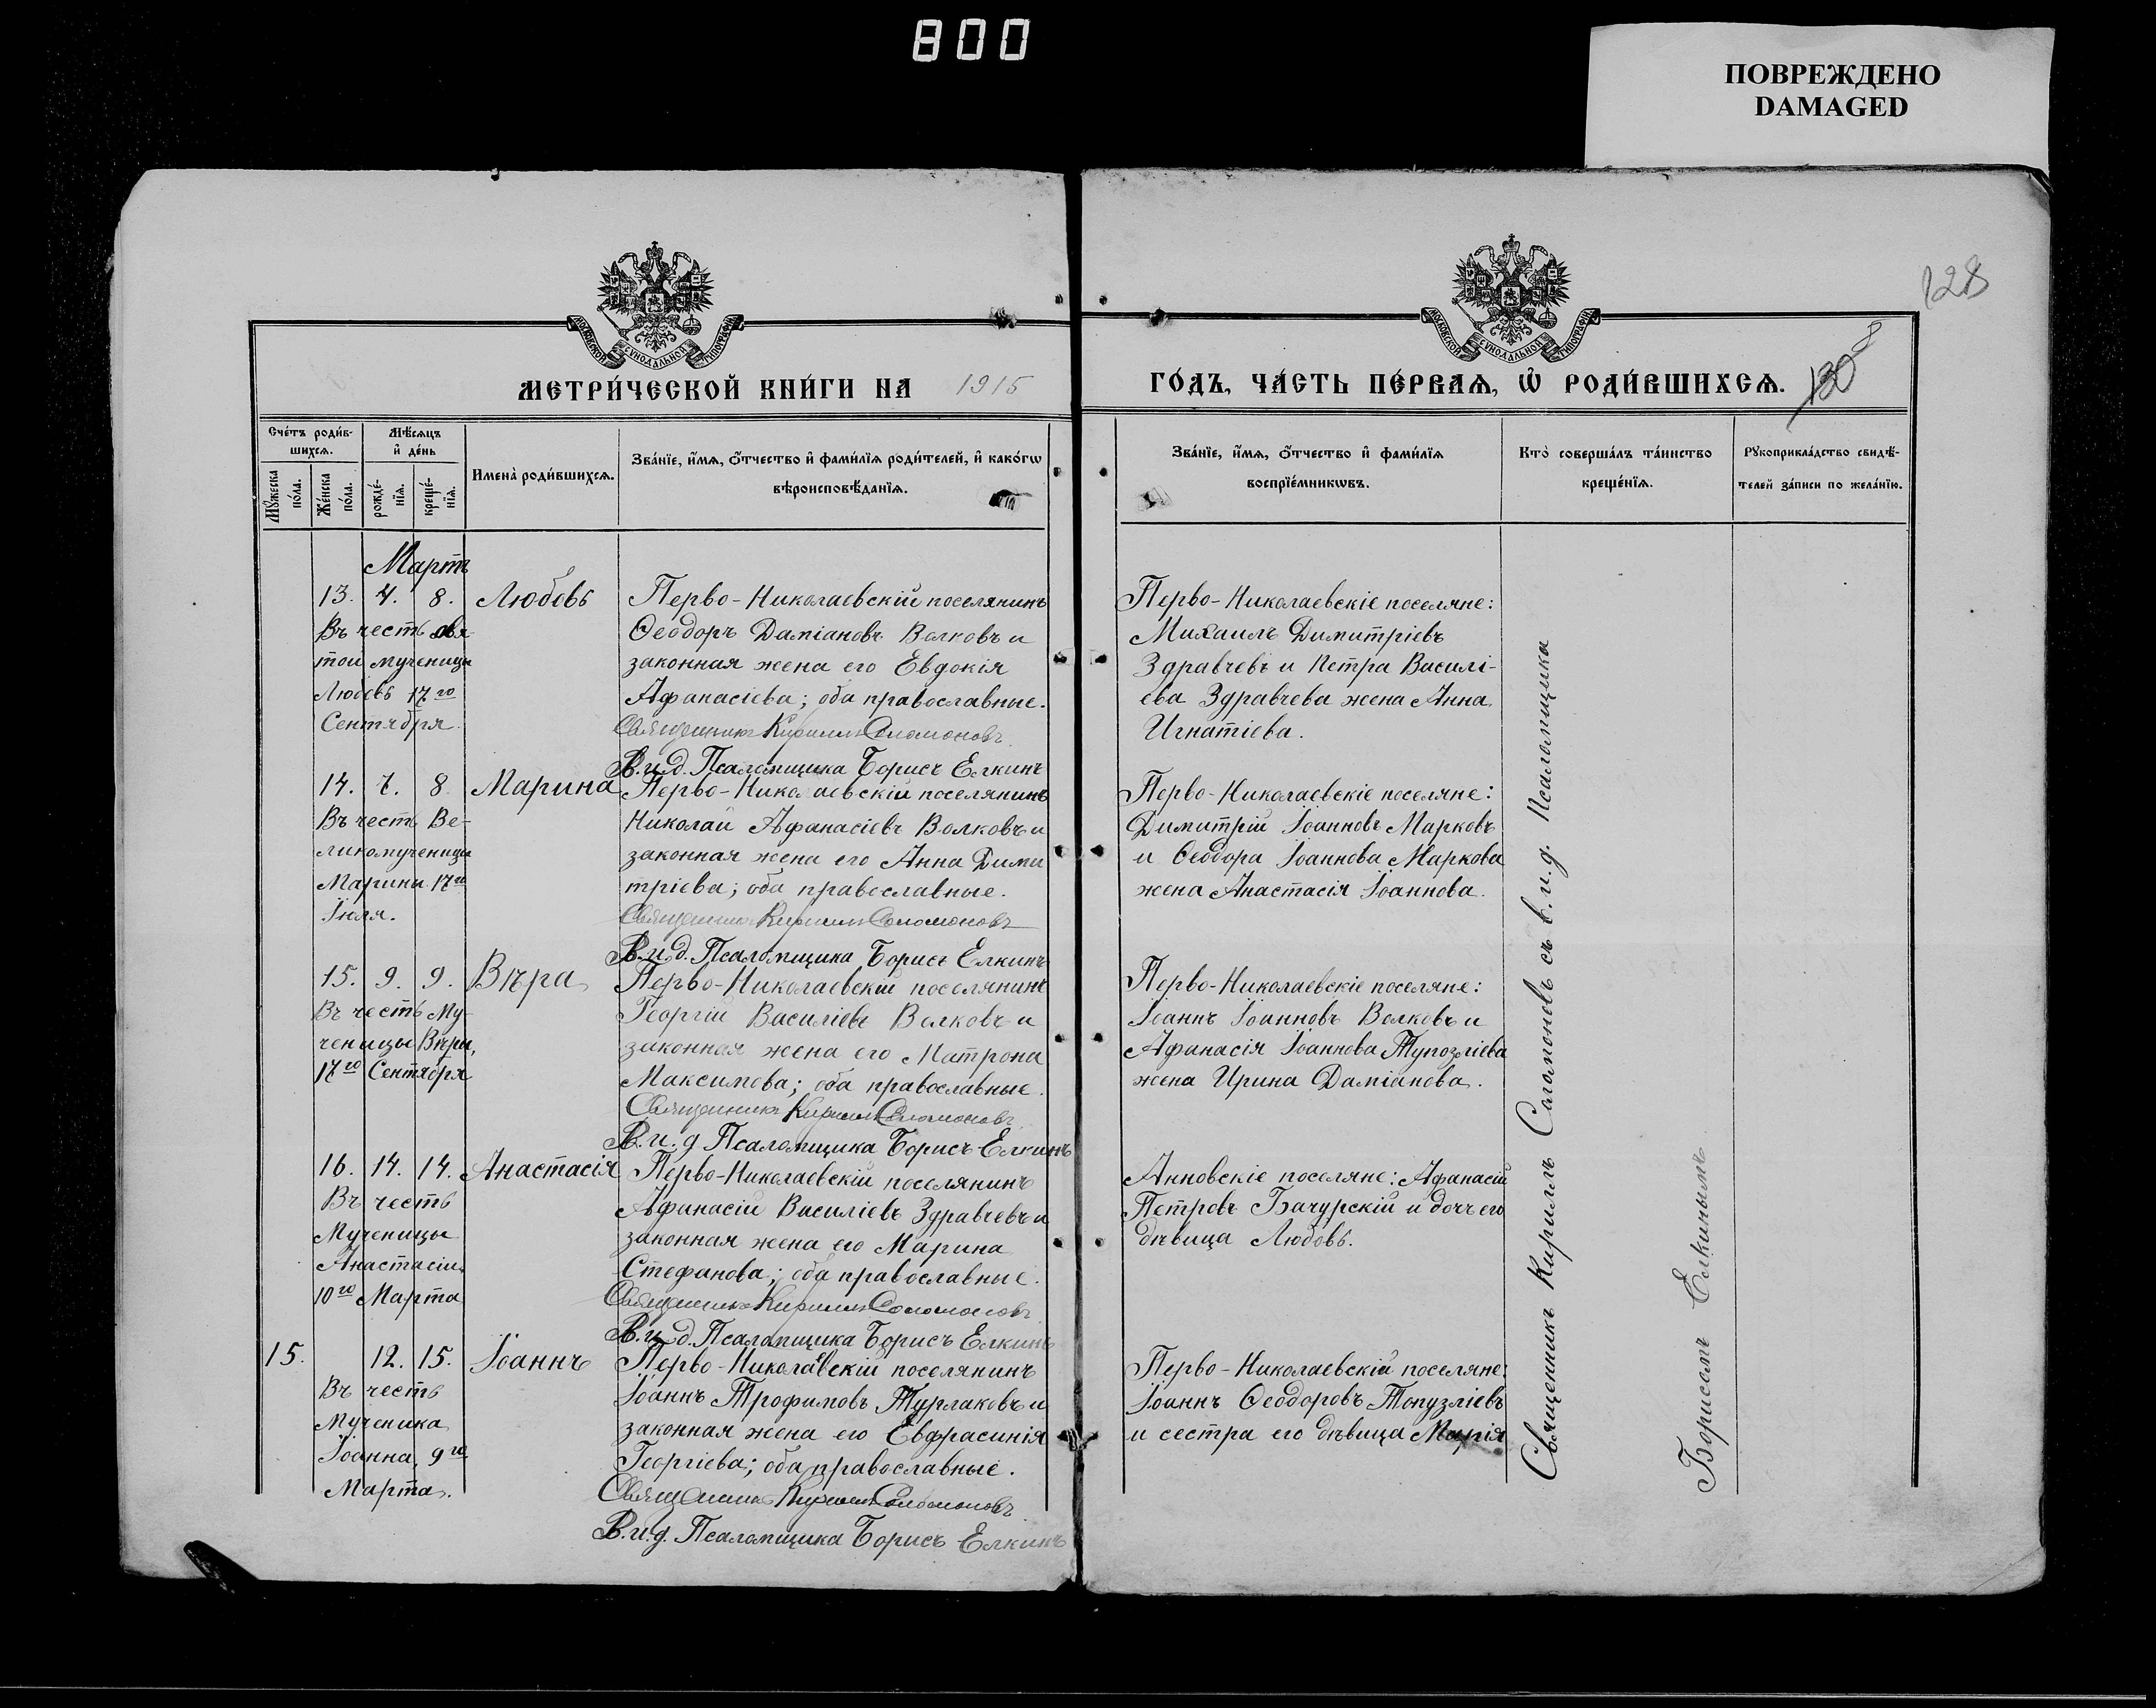 800
ПОВРЕЖДЕНО
DAMAGED
128
МОСКОВСКОЙ СѴНОДАЛЬНОЙ ТИПОГРАФІИ
МОСКОВСКОЙ СѴНОДАЛЬНОЙ ТИПОГРАФІИ
МЕТРИ́ЧЕСКОЙ КНИ́ГИ НА 1915
ГО́ДЪ, ЧА́СТЬ ПЕ́РВАѦ, Ѡ҆ РОДИ́ВШИХСѦ. 130
Сче́тъ роди́в-
шихсѧ.
Мꙋ́жеска
по́ла.
Же́нска
по́ла.
Мѣ́сѧцъ
и҆ де́нь
рожде́-
нїѧ.
креще́-
нїѧ.
Имена̀ роди́вшихсѧ.
Зва́нїе, и҆́мѧ, ѻ҆́тчество и҆ фами́лїѧ роди́телей, и҆ како́гѡ
вѣроисповѣ́данїѧ.
Зва́нїе, и҆́мѧ, ѻ҆́тчество и҆ фами́лїѧ
воспрїе́мникѡвъ.
Кто̀ соверша́лъ та́инство
креще́нїѧ.
Рꙋкоприкла́дство свидѣ́-
телей за́писи по жела́нїю.
Мартъ
13. 4. 8. Любовь
Въ честь свя-
той мученицы
Любовь 17го
Сентября
Перво-Николаевскій поселянинъ
Ѳеодоръ Даміановъ Волковъ и
законная жена его Евдокія
Афанасіева; оба православные.
Священникъ Кириллъ Соломоновъ
В.и.д. Псаломщика Борисъ Елкинъ
Перво-Николаевскіе поселяне:
Михаилъ Димитріевъ
Здравчевъ и Петра Василі-
ева Здравчева жена Анна
Игнатіева.
14. 7. 8 Марина
Въ честь Ве-
ликомученицы
Марины 17го
Іюля.
Перво-Николаевскій поселянинъ
Николай Афанасіевъ Волковъ и
законная жена его Анна Дими
тріева; оба православные.
Священникъ Кириллъ Соломоновъ
В.и.д. Псаломщика Борисъ Елкинъ
Перво-Николаевскіе поселяне:
Димитрій Іоанновъ Марковъ
и Ѳеодора Іоаннова Маркова
жена Анастасія Іоаннова.
15. 9. 9. Вѣра
Въ честь Му-
ченицы Вѣры,
17го Сентября
Перво-Николаевскій поселянинъ
Георгій Василіевъ Волковъ и
законная жена его Матрона
Максимова; оба православные.
Священникъ Кириллъ Соломоновъ
В.и.д Псаломщика Борисъ Елкинъ
Перво-Николаевскіе поселяне:
Іоаннъ Іоанновъ Волковъ и
Афанасія Іоаннова Тупозліева
жена Ирина Даміанова.
16. 14. 14. Анастасія
Въ честь
Мученицы
Анастасіи,
10го Марта
Перво-Николаевскій поселянинъ
Афанасій Василіевъ Здравчевъ и
законная жена его Марина
Стефанова; оба православные.
Священникъ Кириллъ Соломоновъ
В.и.д. Псаломщика Борисъ Елкинъ
Анновскіе поселяне: Афанасій
Петровъ Бачурскій и дочь его
дѣвица Любовь.
15. 12. 15. Іоаннъ
Въ честь
Мученика
Іоанна, 9го
Марта.
Перво-Николаевскій поселянинъ
Іоаннъ Трофимовъ Турлаковъ и
законная жена его Евфрасинія
Георгіева; оба православные.
Священникъ Кириллъ Соломоновъ
В.и.д. Псаломщика Борисъ Елкинъ
Перво-Николаевскій поселяне:
Іоаннъ Ѳеодоровъ Топузліевъ
и сестра его дѣвица Марія
Священникъ Кириллъ Саломоновъ съ в.и.д. Псаломщика
Борисомъ Елкинымъ